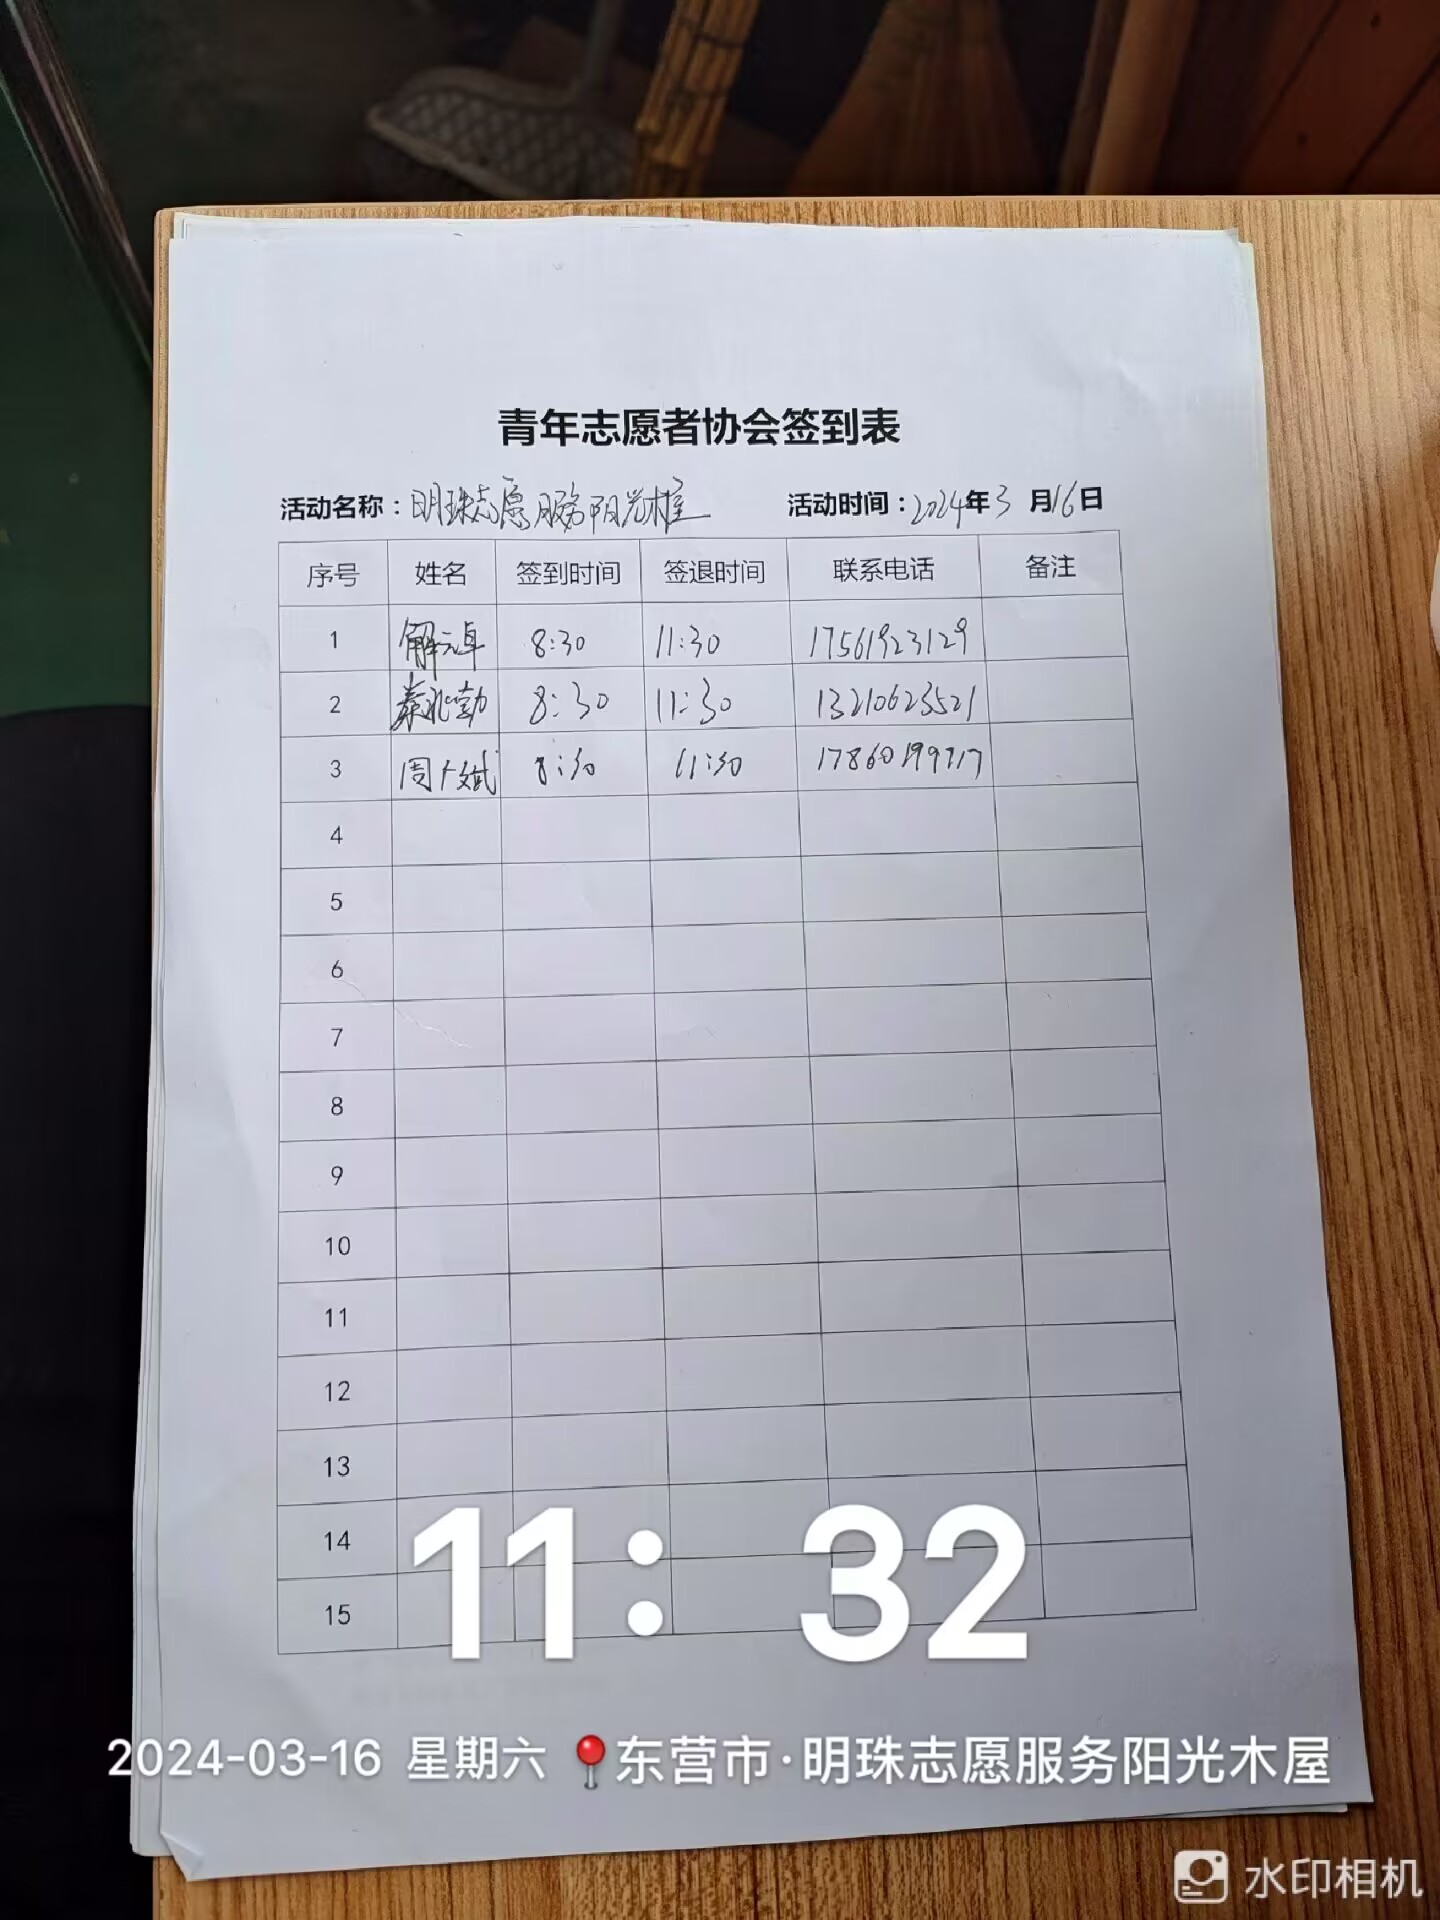 青年志愿者协会签到表
活动名称：明珠志愿服务阳光木屋 活动时间：2024年3月16日
序号 姓名 签到时间 签退时间 联系电话 备注
1 解元卓 8:30 11:30 17561923129
2 秦兆勤 8:30 11:30 13210623521
3 周卜斌 8:30 11:30 17860199717
4
5
6
7
8
9
10
11
12
13
14
15
11：32
2024-03-16 星期六 东营市·明珠志愿服务阳光木屋
水印相机